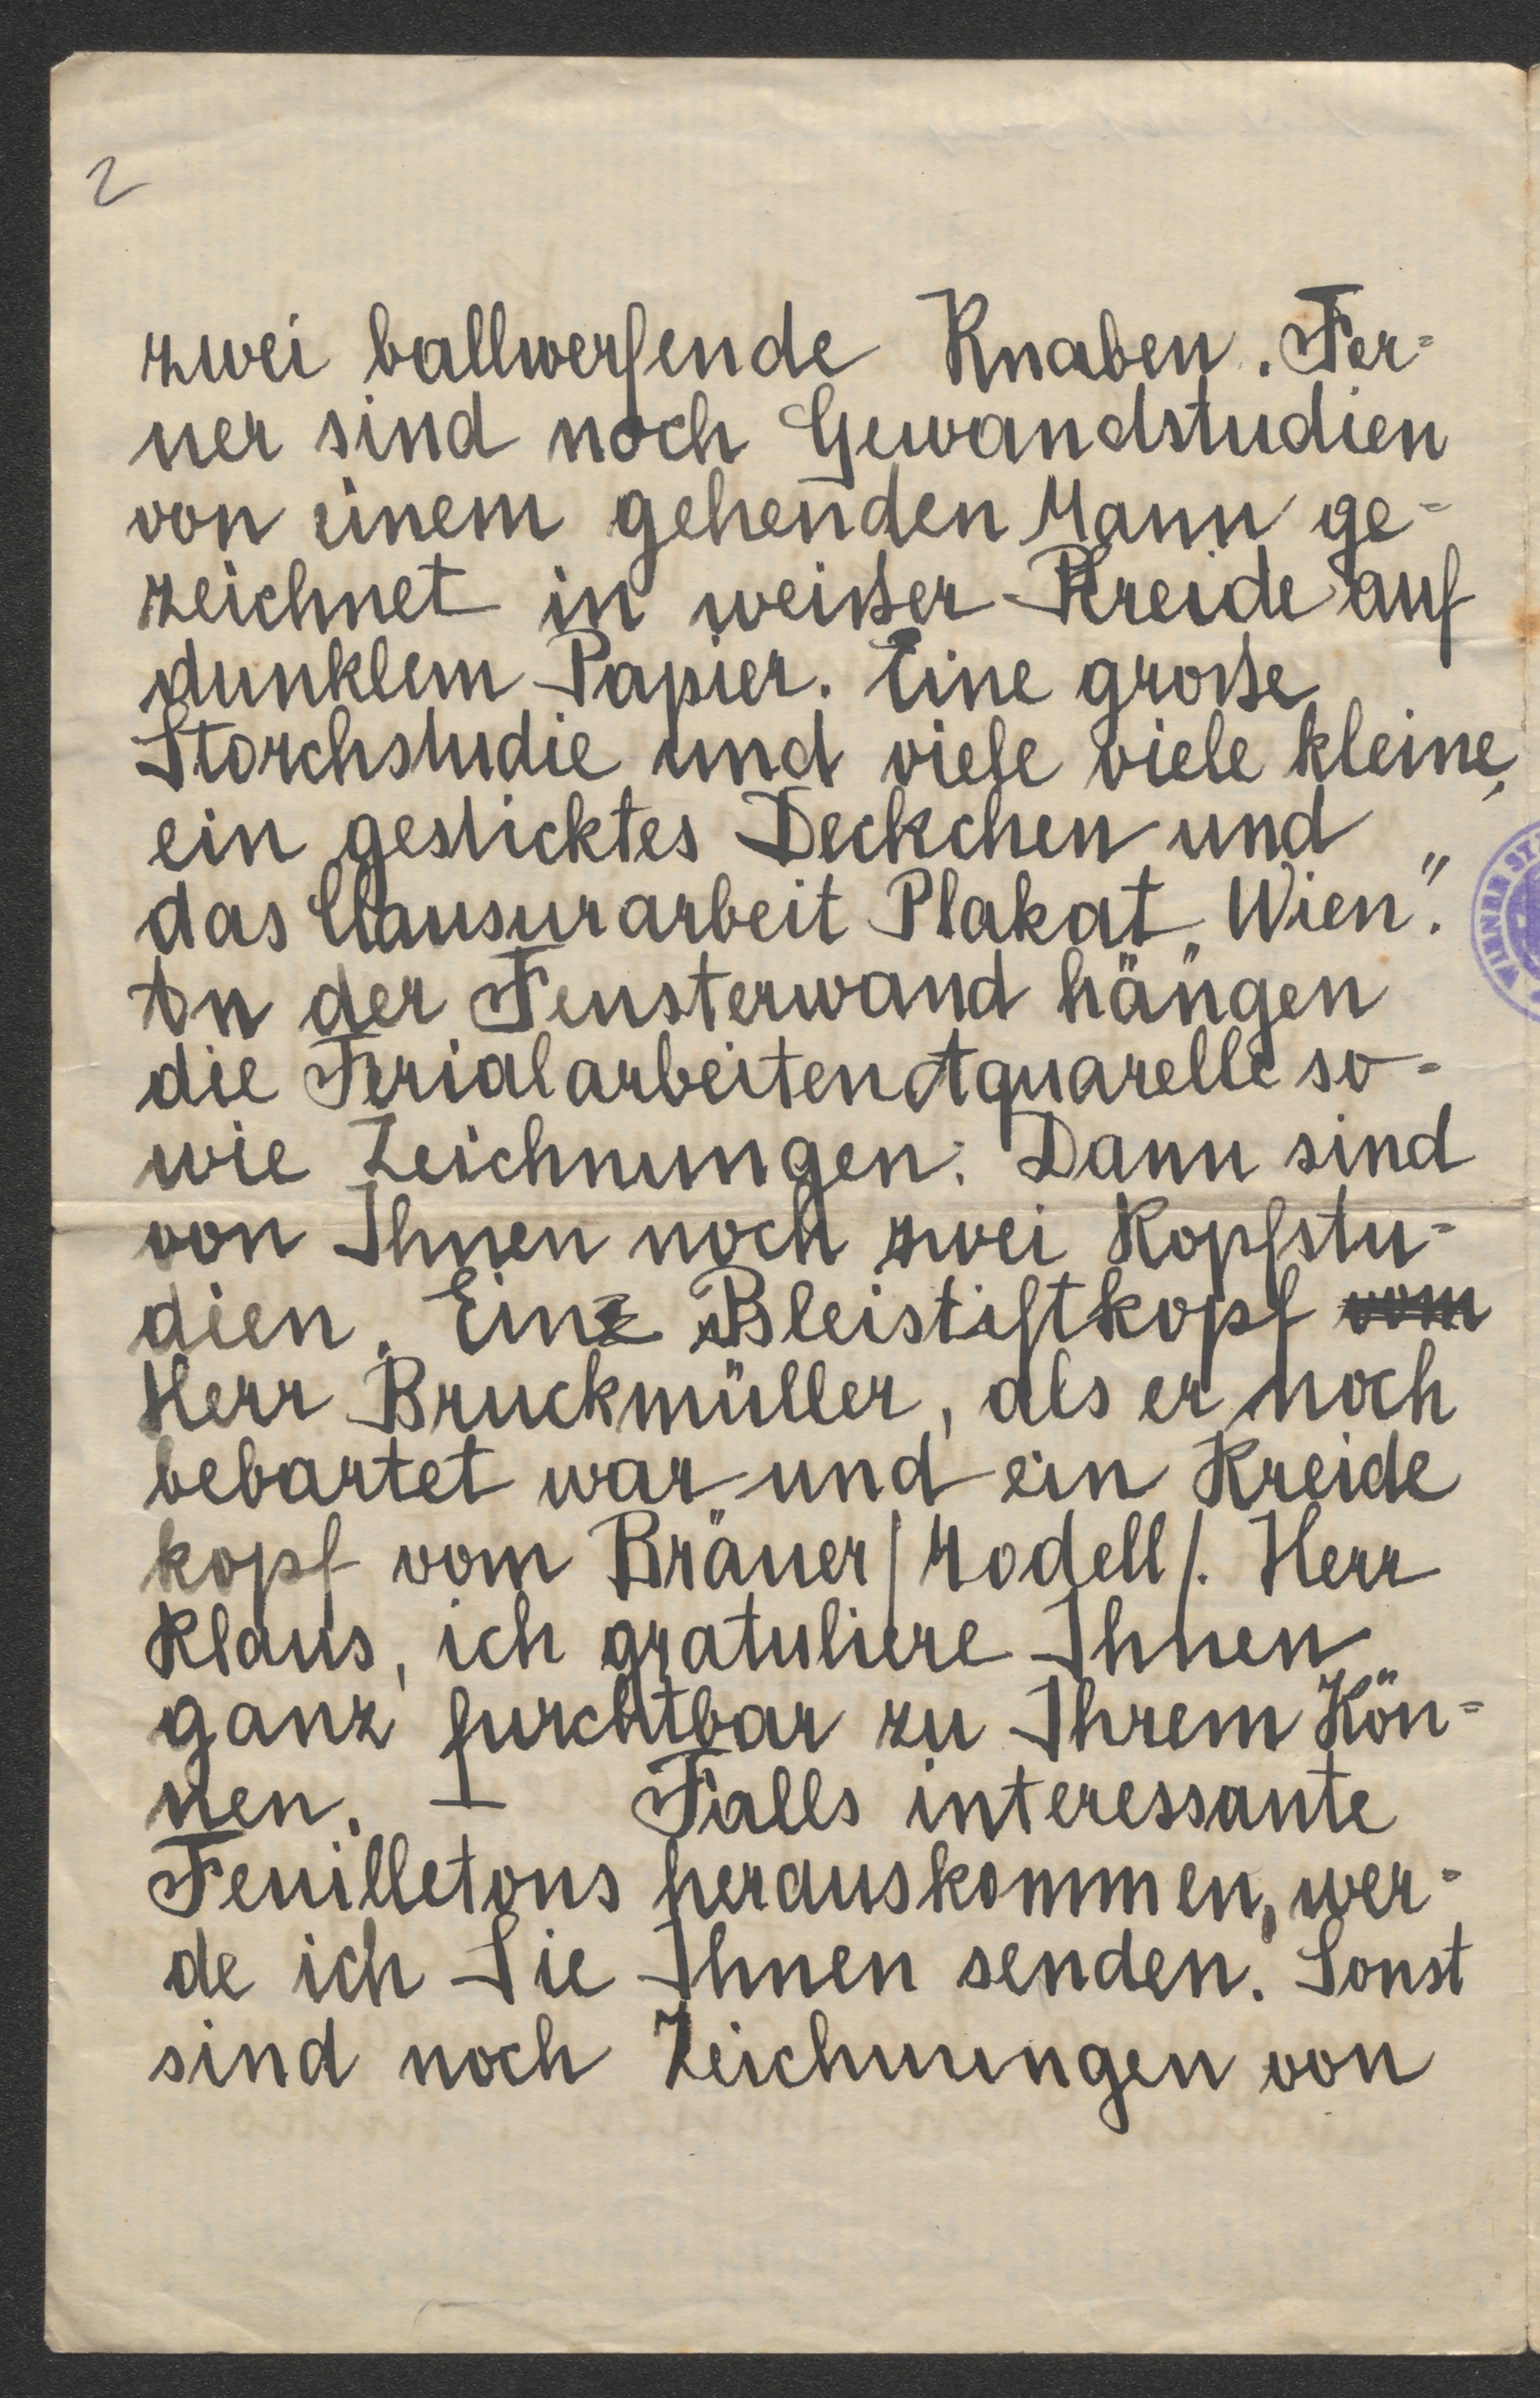 2
zwei ballwerfende Knaben. Fer=
ner sind noch Gewandstudien
von einem gehenden Mann ge=
zeichnet in weißer Kreide auf
dunklem Papier. Eine große
Storchstudie und viele viele kleine,
ein gesticktes Deckchen und
das Clausurarbeit Plakat „Wien“.
An der Fensterwand hängen
die Ferialarbeiten Aquarelle so=
wie Zeichnungen. Dann sind
von Ihnen noch zwei Kopfstu=
dien. Ein Bleistiftkopf vom
Herr Bruckmüller, als er noch
bebartet war und ein Kreide
kopf vom Bräuer /Modell/. Herr
Klaus, ich gratuliere Ihnen
ganz furchtbar zu Ihrem Kön=
nen. – Falls interessante
Feuilletons herauskommen, wer=
de ich Sie Ihnen senden. Sonst
sind noch Zeichnungen von
WIENER ST